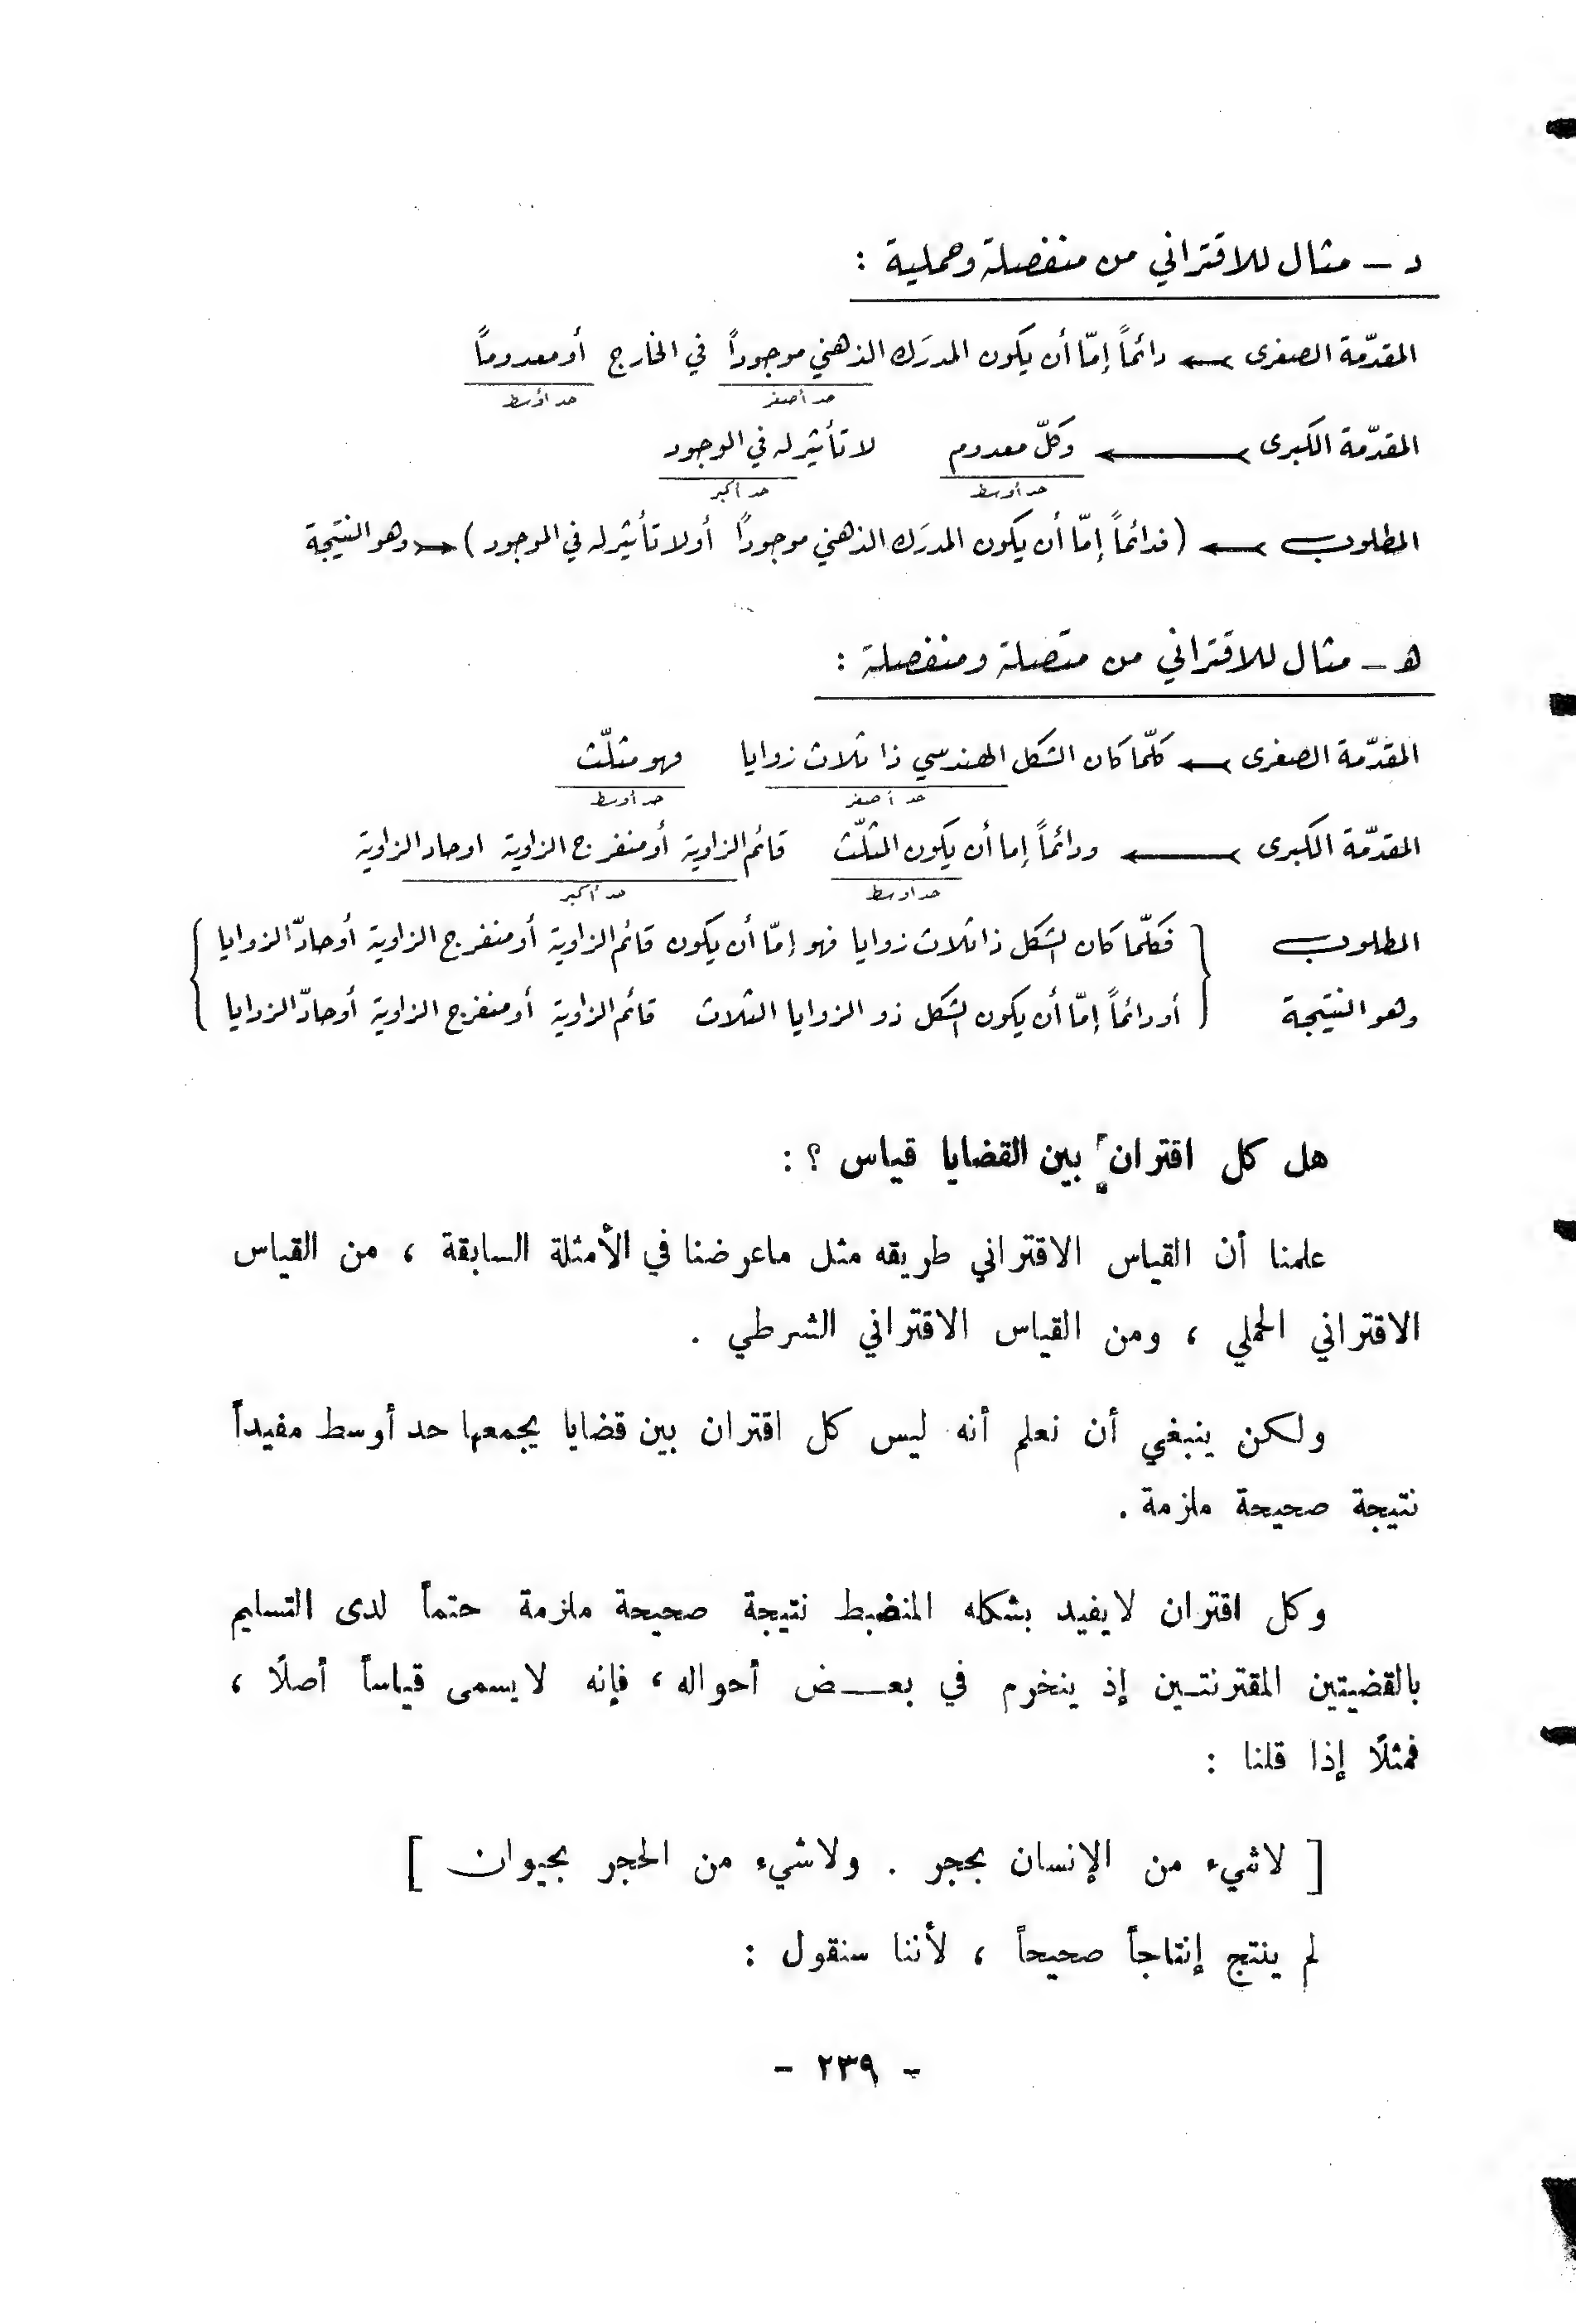 د ـ مثال للاقتراني من منفصلة وحملية :
المقدّمة الصغرى ← دائماً إمّا أن يكون المدرَك الذهني موجوداً في الخارج أو معدوماً
حد أصغر حد أوسط
المقدّمة الكبرى ← وكلّ معدوم لا تأثير له في الوجود
حد أوسط حد أكبر
المطلوب ← (فدائماً إمّا أن يكون المدرَك الذهني موجوداً أو لا تأثير له في الموجود) ← وهو النتيجة
هـ ـ مثال للاقتراني من متصلة ومنفصلة :
المقدّمة الصغرى ← كلّما كان الشكل الهندسي ذا ثلاث زوايا فهو مثلّث
حد أصغر حد أوسط
المقدّمة الكبرى ← ودائماً إما أن يكون المثلّث قائم الزاوية أو منفرج الزاوية او حاد الزاوية
حد اوسط حد أكبر
المطلوب { فكلّما كان الشكل ذا ثلاث زوايا فهو إمّا أن يكون قائم الزاوية أو منفرج الزاوية أو حادّ الزوايا }
وهو النتيجة { أو دائماً إمّا أن يكون الشكل ذو الزوايا الثلاث قائم الزاوية أو منفرج الزاوية أو حادّ الزوايا }
هل كل اقتران بين القضايا قياس ؟ :
علمنا أن القياس الاقتراني طريقه مثل ماعرضنا في الأمثلة السابقة ، من القياس
الاقتراني الحملي ، ومن القياس الاقتراني الشرطي .
ولكن ينبغي أن نعلم أنه ليس كل اقتران بين قضايا يجمعها حد أوسط مفيداً
نتيجة صحيحة ملزمة .
وكل اقتران لايفيد بشكله المنضبط نتيجة صحيحة ملزمة حتماً لدى التسليم
بالقضيتين المقترنتـين إذ ينخرم في بعـــض أحواله ، فإنه لايسمى قياساً أصلًا ،
فمثلًا إذا قلنا :
[ لاشيء من الإنسان بحجر . ولاشيء من الحجر بحيوان ]
لم ينتج إنتاجاً صحيحاً ، لأننا سنقول :
- ٢٣٩ -